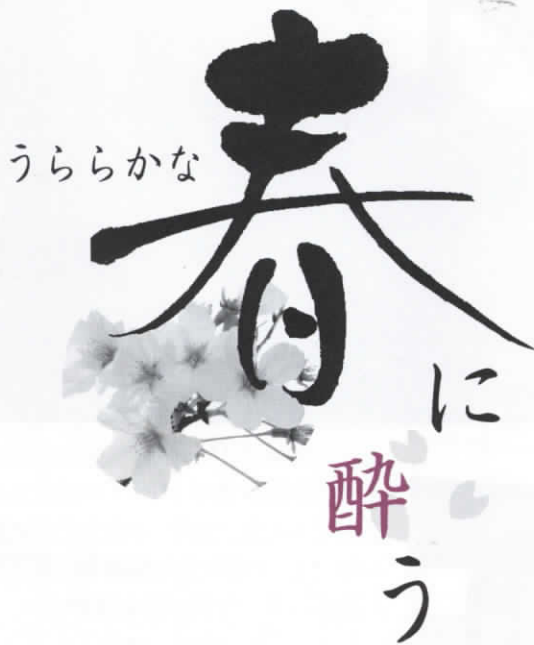 うららかな
春
に
酔
う